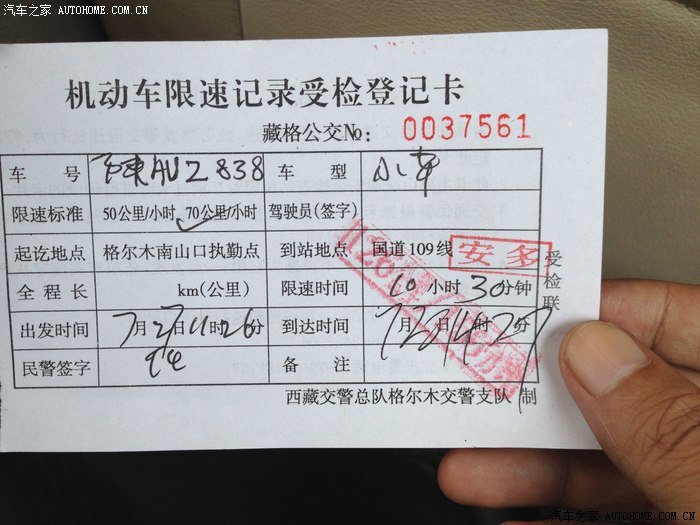 汽车之家 AUTOHOME.COM.CN
机动车限速记录受检登记卡
藏格公交№: 0037561
车 号 AU2838 车 型 小车
限速标准 50公里/小时、70公里/小时 驾驶员(签字)
起讫地点 格尔木南山口执勤点 到站地点 国道109线 安多
全 程 长 km(公里) 限速时间 10小时30分钟
出发时间 7月27日11时26分 到达时间 7月 日 时 分
民警签字 备 注
西藏交警总队格尔木交警支队 制
受检联
汽车之家 AUTOHOME.COM.CN